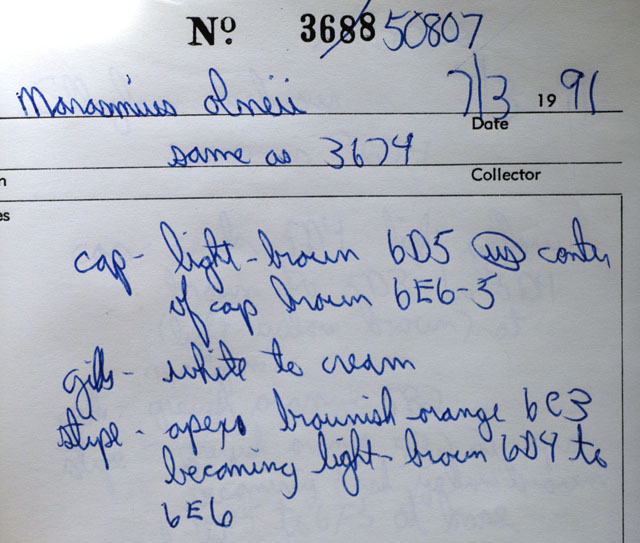 Nº 3688 50807
Marasmius olneii 7/3 1991
Date
same as 3674
n Collector
es
cap - light-brown 6D5 center
of cap brown 6E6-5
gills - white to cream
stipe - apex brownish orange 6C3
becoming light-brown 6D4 to
6E6